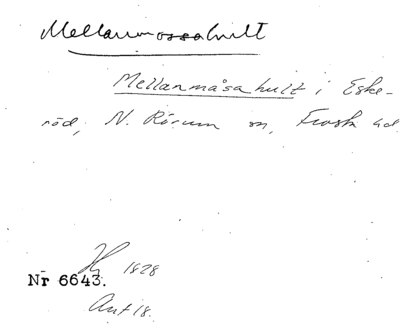 Mellanmossahult
Mellanmåsahult i Eske-
röd, N. Rörum sn, Frosta hd.
1828
Nr 6643.
Ant 18.